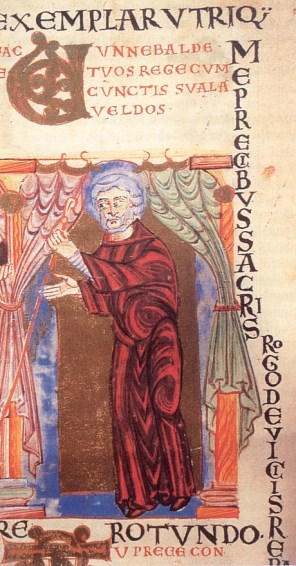 EXEMPLAR UTRIQ;
AC UNNEBALDE
E TUOS REGE CUM
CUNCTIS SUALA
VELDOS.
ME PRECIBVS SACRIS
ROGO DEVICTIS RE
RE ROTUNDO.
U P REGE CON